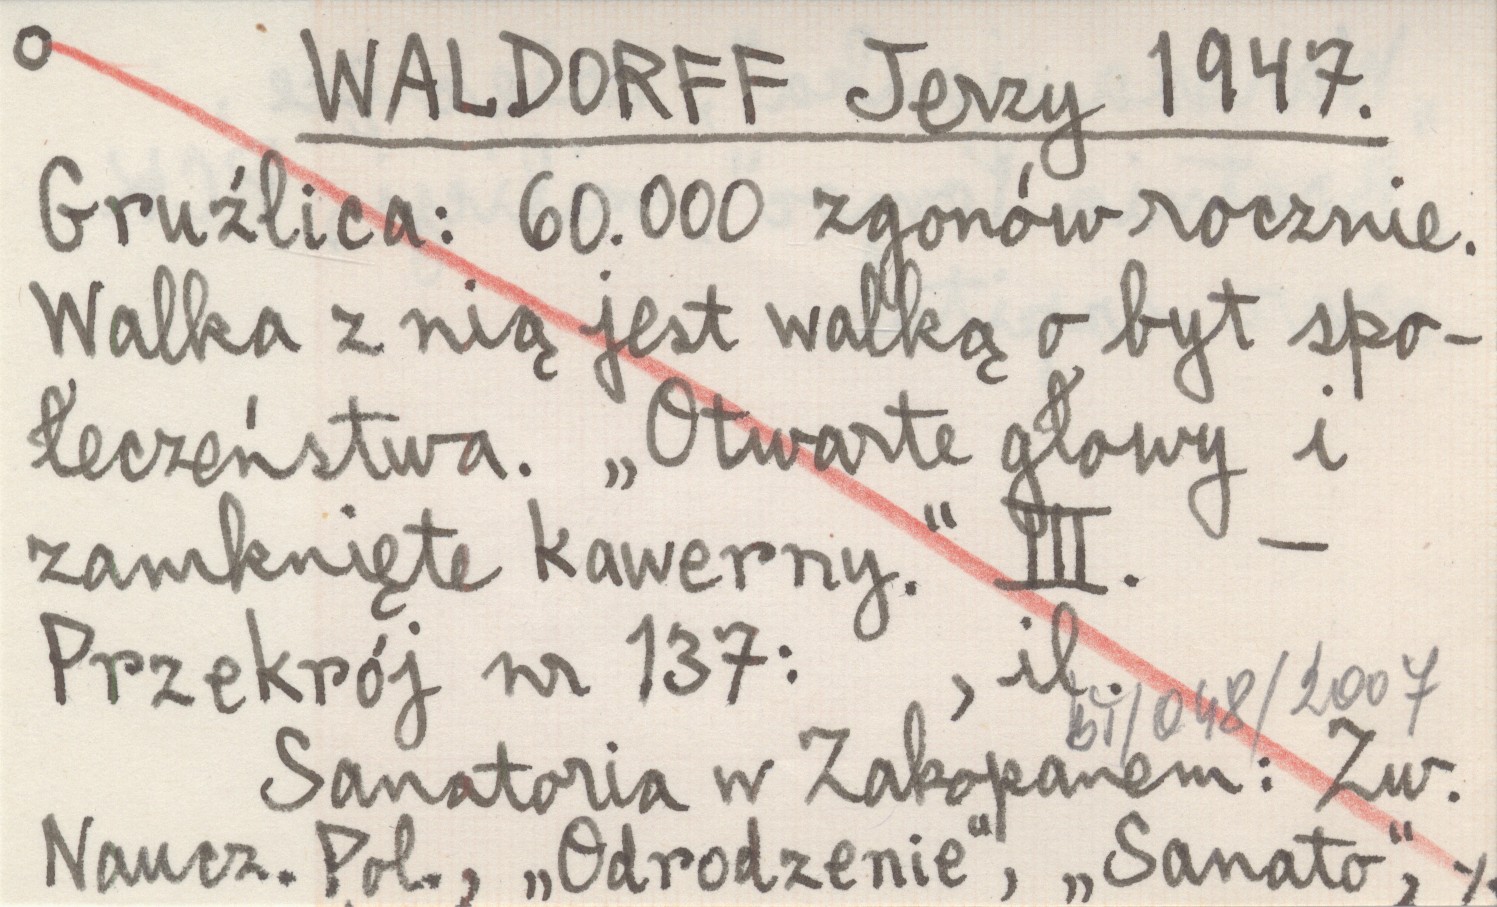 WALDORFF Jerzy 1947.
Gruźlica: 60.000 zgonów rocznie.
Walka z nią jest walką o byt spo-
łeczeństwa. „Otwarte głowy i
zamknięte kawerny." III. —
Przekrój nr 137: , il.
bī/048/2007
Sanatoria w Zakopanem: Zw.
Naucz. Pol., „Odrodzenie", „Sanato", ⁒